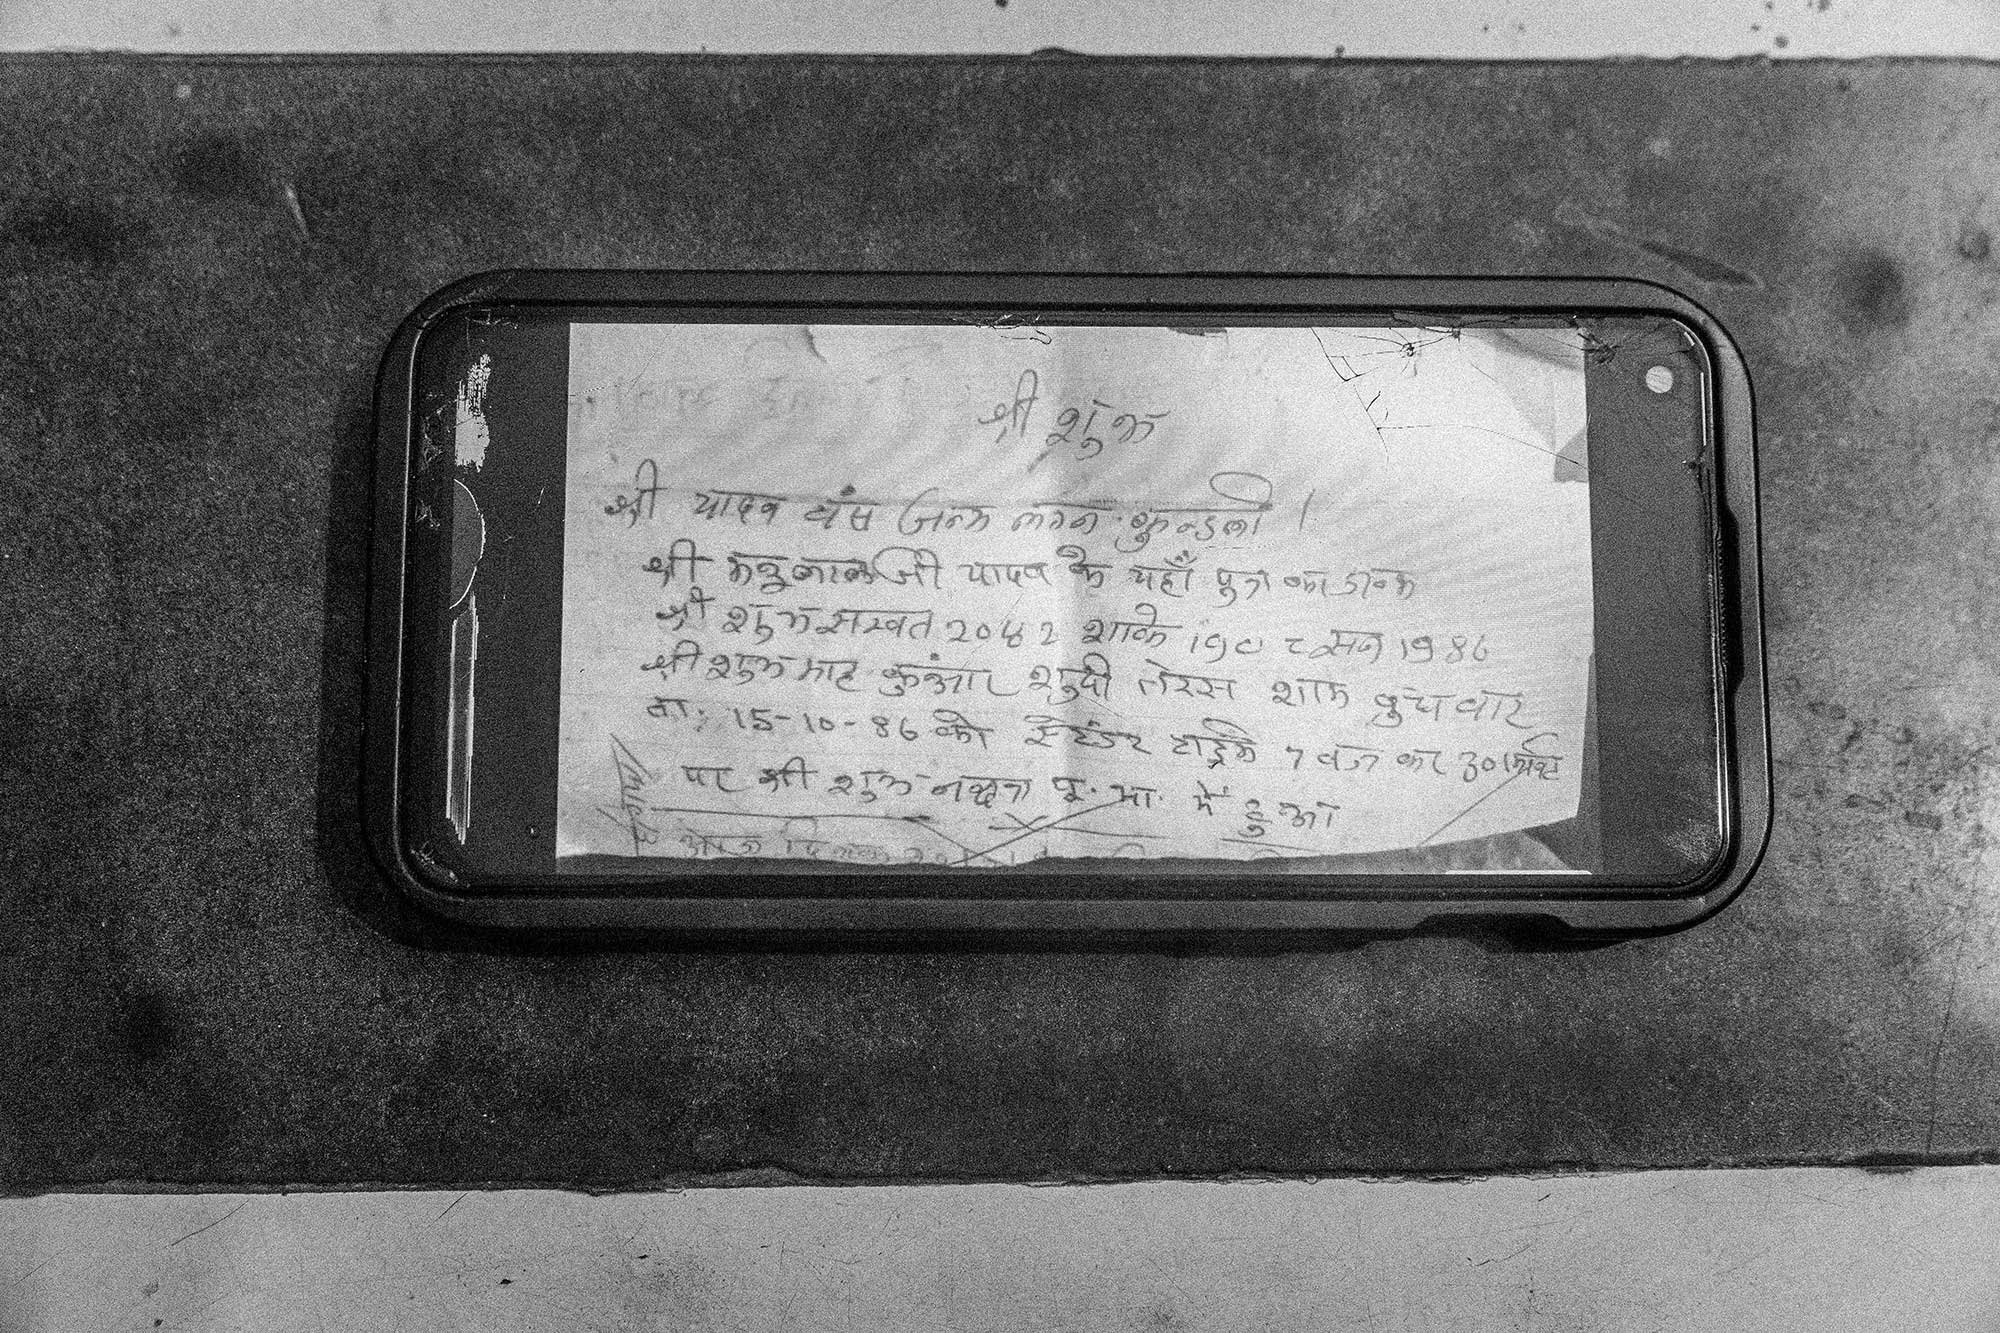 श्री शुभ
श्री यादव वंस जन्म लग्न कुन्डली ।
श्री जी यादव के यहाँ पुत्र का जन्म
श्री शुभ सम्वत 2042 शाके 190८ सन 1986
श्री शुभ माह कुंआर शुदी तेरस शाम बुधवार
ता: 15-10-86 को स्टेंडर टाईम 7 बज कर 30 मिनिट
पर श्री शुभ नक्षत्र पू. भा. में हुआ